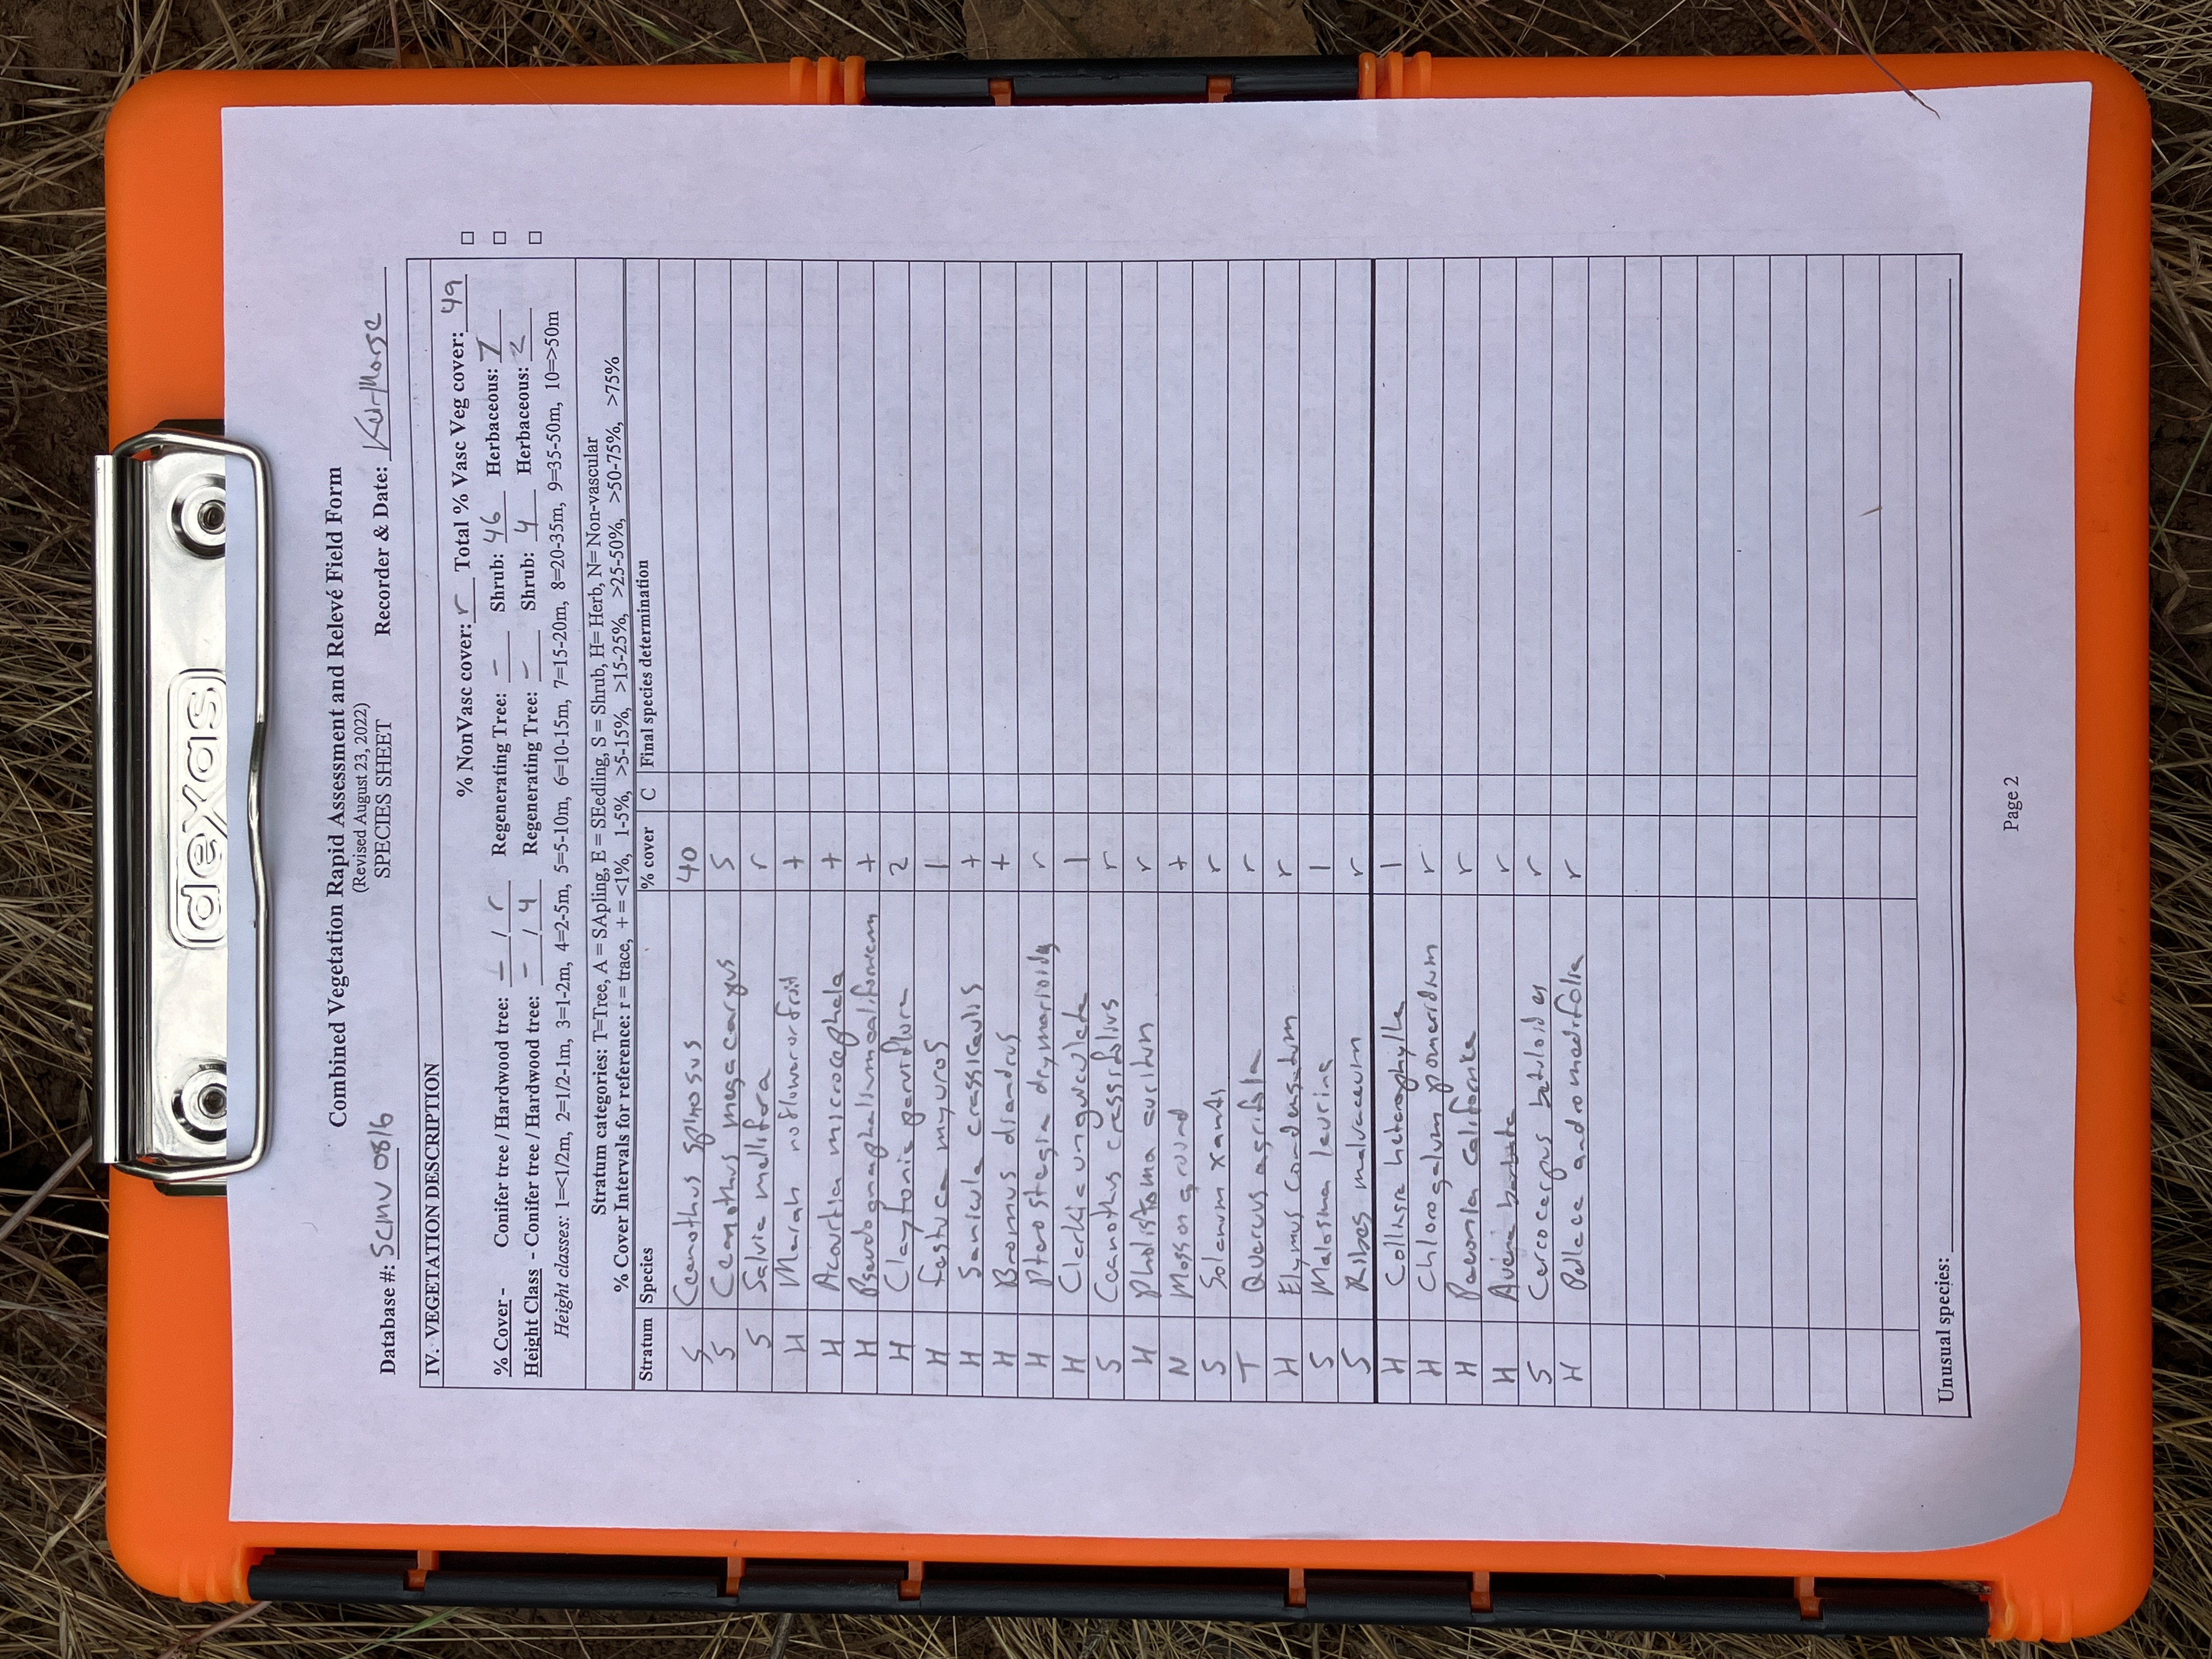 dexas
Combined Vegetation Rapid Assessment and Relevé Field Form
(Revised August 23, 2022)
SPECIES SHEET
Database #: SCMV 0816 Recorder & Date: Kurt Morse
IV. VEGETATION DESCRIPTION
% NonVasc cover: r Total % Vasc Veg cover: 49 □
% Cover - Conifer tree / Hardwood tree: - / r Regenerating Tree: - Shrub: 46 Herbaceous: 7 □
Height Class - Conifer tree / Hardwood tree: - / 4 Regenerating Tree: - Shrub: 4 Herbaceous: 2 □
Height classes: 1=<1/2m, 2=1/2-1m, 3=1-2m, 4=2-5m, 5=5-10m, 6=10-15m, 7=15-20m, 8=20-35m, 9=35-50m, 10=>50m
Stratum categories: T=Tree, A = SApling, E = SEedling, S = Shrub, H= Herb, N= Non-vascular
% Cover Intervals for reference: r = trace, + = <1%, 1-5%, >5-15%, >15-25%, >25-50%, >50-75%, >75%
Stratum Species % cover C Final species determination
S Ceanothus spinosus 40
S Ceanothus megacarpus 5
S Salvia mellifera r
H Marah no flower or fruit +
H Acourtia microcephala +
H Pseudognaphalium californicum +
H Claytonia parviflora 2
H Festuca myuros 1
H Sanicula crassicaulis +
H Bromus diandrus +
H Pterostegia drymarioides r
H Clarkia unguiculata 1
S Ceanothus crassifolius r
H Pholistoma auritum r
N Moss on ground +
S Solanum xanti r
T Quercus agrifolia r
H Elymus condensatum r
S Malosma laurina 1
S Ribes malvaceum r
H Collinsia heterophylla 1
H Chlorogalum pomeridium r
H Paeonia californica r
H Avena barbata r
S Cercocarpus betuloides r
H Pellaea andromedifolia r
Unusual species:
Page 2